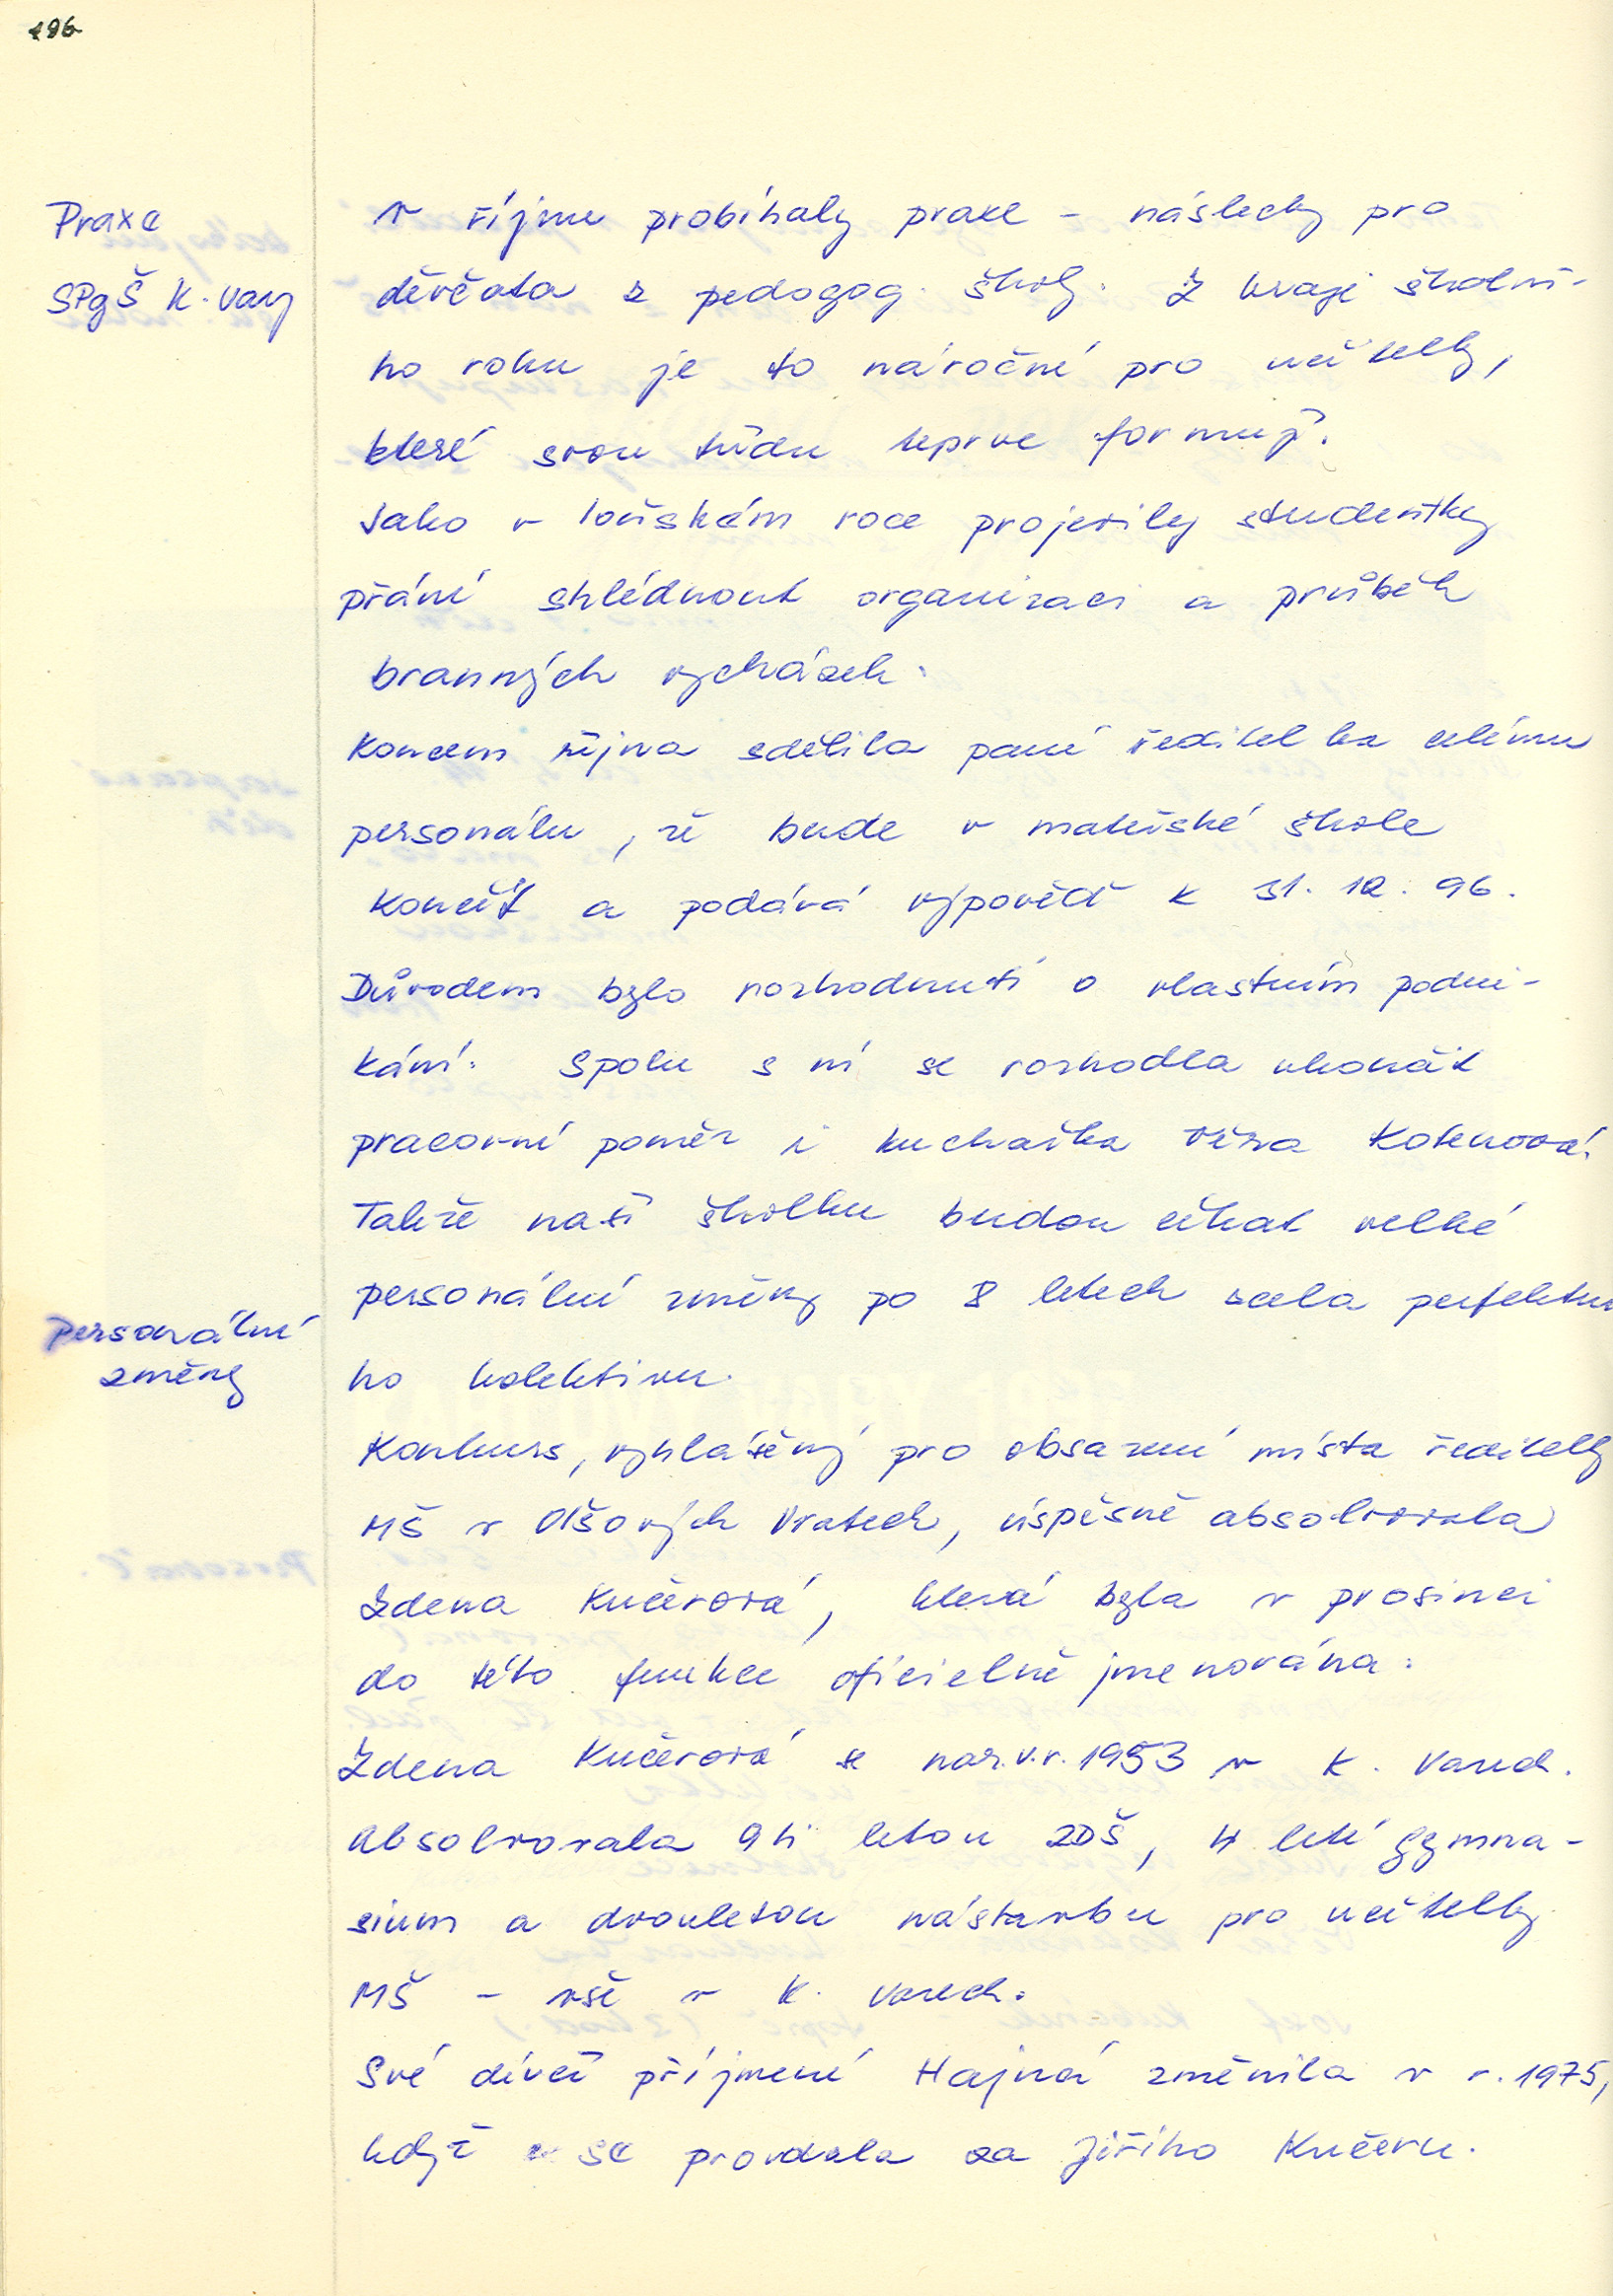 196
Praxe
SPgŠ K. Vary
V říjnu probíhaly praxe - náslechy pro
děvčata z pedogog. školy. Z kraje školní-
ho roku je to náročné pro učitelky,
které svou třídu teprve formují.
Jako v loňském roce projevily studentky
přání shlédnout organizaci a průběh
branných vycházek.
Koncem října sdělila paní ředitelka celému
personálu, že bude v mateřské škole
končit a podává výpověď k 31. 12. 96.
Důvodem bylo rozhodnutí o vlastním podni-
kání. Spolu s ní se rozhodla ukončit
pracovní poměr i kuchařka Věra Kotenová.
Takže naší školku budou čekat velké
personální změny po 8 letech zcela perfektní
ho kolektivu.
Personální
změny
Konkurs, vyhlášený pro obsazení místa ředitelky
MŠ v Olšových Vratech, úspěšně absolvovala
Zdena Kučerová, která byla v prosinci
do této funkce oficielně jmenována.
Zdena Kučerová se nar. v. r. 1953 v K. Varech.
Absolvovala 9ti letou ZDŠ, 4 leté gymna-
sium a dvouletou nástavbu pro učitelky
MŠ - vše v K. Varech.
Své dívčí příjmení Hajná změnila v r. 1975,
když se provdala za Jiřího Kučeru.